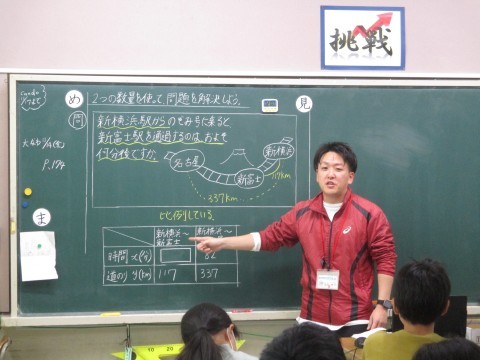 挑戦
め
2つの数量を使って問題を解決しよう。
見
問
新横浜駅からのぞみ号に乗ると
新富士駅を通過するのは、およそ
何分後ですか。
名古屋
新富士
新横浜
117km
337km
比例している。
ま
P.174
新横浜〜新富士
新横浜〜
時間 x(分)
82
道のり y(km)
117
337
10
20